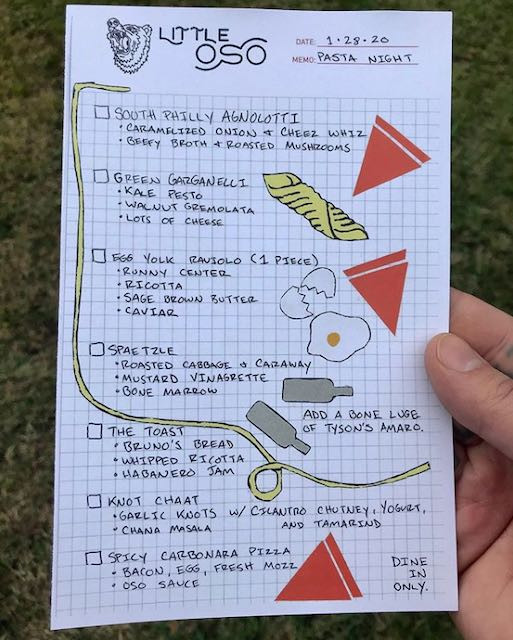 LITTLE
OSO
DATE: 1.28.20
MEMO: PASTA NIGHT
SOUTH PHILLY AGNOLOTTI
• CARAMELIZED ONION & CHEEZ WHIZ
• BEEFY BROTH & ROASTED MUSHROOMS
GREEN GARGANELLI
• KALE PESTO
• WALNUT GREMOLATA
• LOTS OF CHEESE
EGG YOLK RAVIOLO (1 PIECE)
• RUNNY CENTER
• RICOTTA
• SAGE BROWN BUTTER
• CAVIAR
SPAETZLE
• ROASTED CABBAGE & CARAWAY
• MUSTARD VINAGRETTE
• BONE MARROW
ADD A BONE LUGE
OF TYSON'S AMARO.
THE TOAST
• BRUNO'S BREAD
• WHIPPED RICOTTA
• HABANERO JAM
KNOT CHAAT
• GARLIC KNOTS W/ CILANTRO CHUTNEY, YOGURT,
AND TAMARIND
• CHANA MASALA
SPICY CARBONARA PIZZA
• BACON, EGG, FRESH MOZZ
• OSO SAUCE
DINE
IN
ONLY.